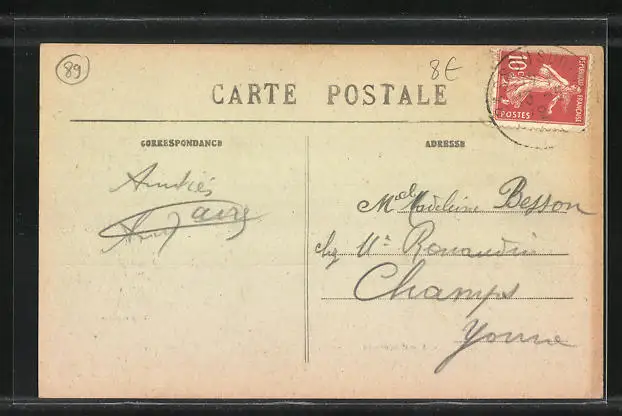 89
8€
CARTE POSTALE
10c
REPUBLIQUE FRANÇAISE
POSTES
CORRESPONDANCE
ADRESSE
Amitiés
Melle Madeleine Besson
chez
Champs
Yonne